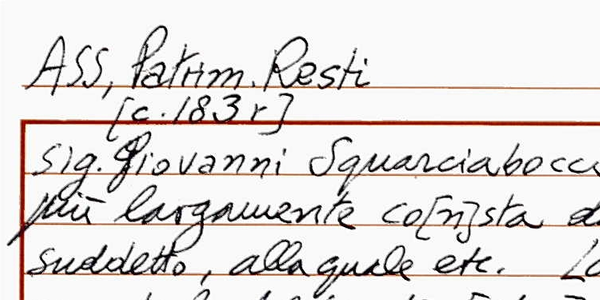 ASS, Patrim. Resti
[c. 183 r]
sig. Giovanni Squarciabocc
più largamente co[n]sta d
suddetto, alla quale etc. Lo